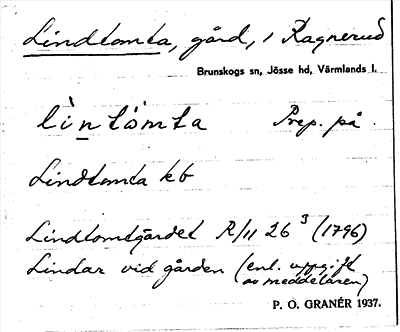 Lindtomta, gård, i Ragnerud
Brunskogs sn, Jösse hd, Värmlands l.
lìntömta Prep. på.
Lindtomta kb
Lindtomtgärdet R/11 26³ (1796)
Lindar vid gården (enl. uppgift
av meddelaren)
P. O. GRANÉR 1937.